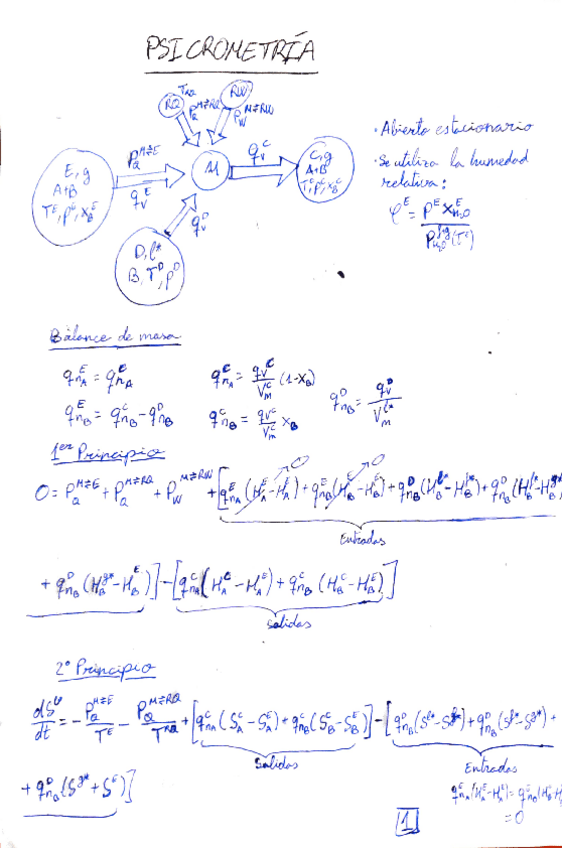 PSICROMETRÍA
RQ T_RQ
RW
P_Q^{M⇄RQ}
P_W^{M⇄RW}
E, g
A+B
T^E, p^E, x_B^E
P_Q^{M⇄E}
q_V^E
M
q_V^C
C, g
A+B
T^C, p^C, x_B^C
q_V^D
D, l*
B, T^D, p^D
· Abierto estacionario
· Se utiliza la humedad
relativa:
φ^E = p^E x_{H2O}^E / p_{H2O}^{l,g}(T^E)
Balance de masa
q_{nA}^E = q_{nA}^C
q_{nA}^C = q_V^C / V_m^C (1-x_B)
q_{nB}^D = q_V^D / V_m^{l*}
q_{nB}^E = q_{nB}^C - q_{nB}^D
q_{nB}^C = q_V^C / V_m^C x_B
1er Principio
0 = P_Q^{M⇄E} + P_Q^{M⇄RQ} + P_W^{M⇄RW} + [q_{nA}^E (H_A^E - H_A^E) + q_{nB}^E (H_B^E - H_B^E) + q_{nB}^D (H_B^{l*} - H_B^{l*}) + q_{nB}^D (H_B^{l*} - H_B^{g*})
0
0
Entradas
+ q_{nB}^D (H_B^{g*} - H_B^E)] - [q_{nA}^C (H_A^C - H_A^E) + q_{nB}^C (H_B^C - H_B^E)]
Salidas
2º Principio
dS/dt = - P_Q^{M⇄E} / T^E - P_Q^{M⇄RQ} / T^{RQ} + [q_{nA}^C (S_A^C - S_A^E) + q_{nB}^C (S_B^C - S_B^E)] - [q_{nB}^D (S^{l*} - S^{l*}) + q_{nB}^D (S^{l*} - S^{g*}) +
Salidas
Entradas
+ q_{nB}^D (S^{g*} + S^E)]
q_{nA}^E (H_A^E - H_A^E) = q_{nB}^E (H_B^E - H
= 0
1